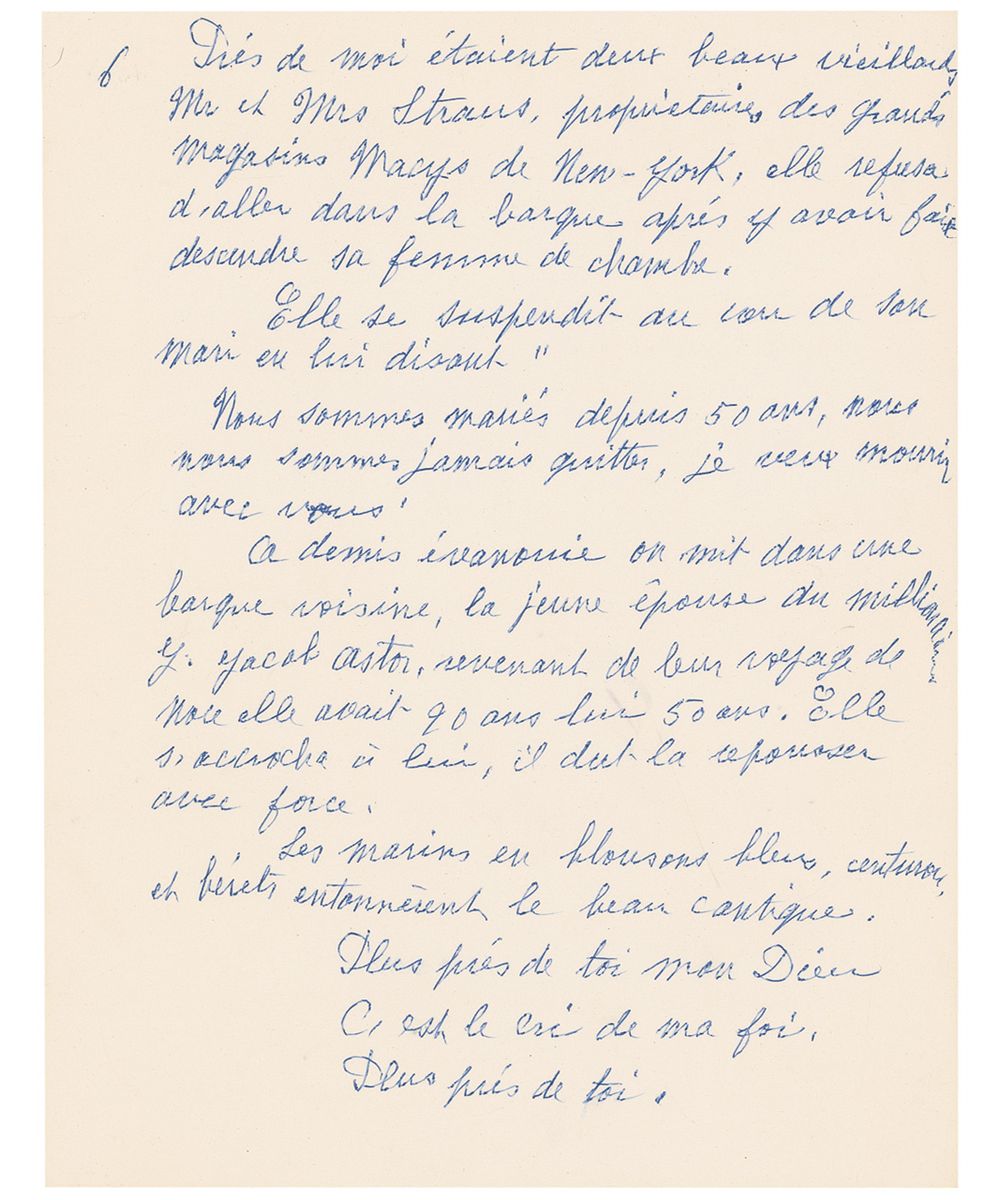 6
Près de moi étaient deux beaux vieillards,
Mr et Mrs Straus, propriétaires des grands
magasins Macys de New-York, elle refusa
d'aller dans la barque après y avoir fait
descendre sa femme de chambre.
Elle se suspendit au cou de son
mari en lui disant "
Nous sommes mariés depuis 50 ans, nous
nous sommes jamais quittés, je veux mourir
avec vous'
A demis évanouie on mit dans une
barque voisine, la jeune épouse du millionnaire
J. Jacob Astor, revenant de leur voyage de
Noce elle avait 90 ans lui 50 ans. Elle
s'accrocha à lui, il dut la repousser
avec force.
Les marins en blousons bleus, centurons,
et bérets entonnèrent le beau cantique.
Plus près de toi mon Dieu
C'est le cri de ma foi.
Plus près de toi.